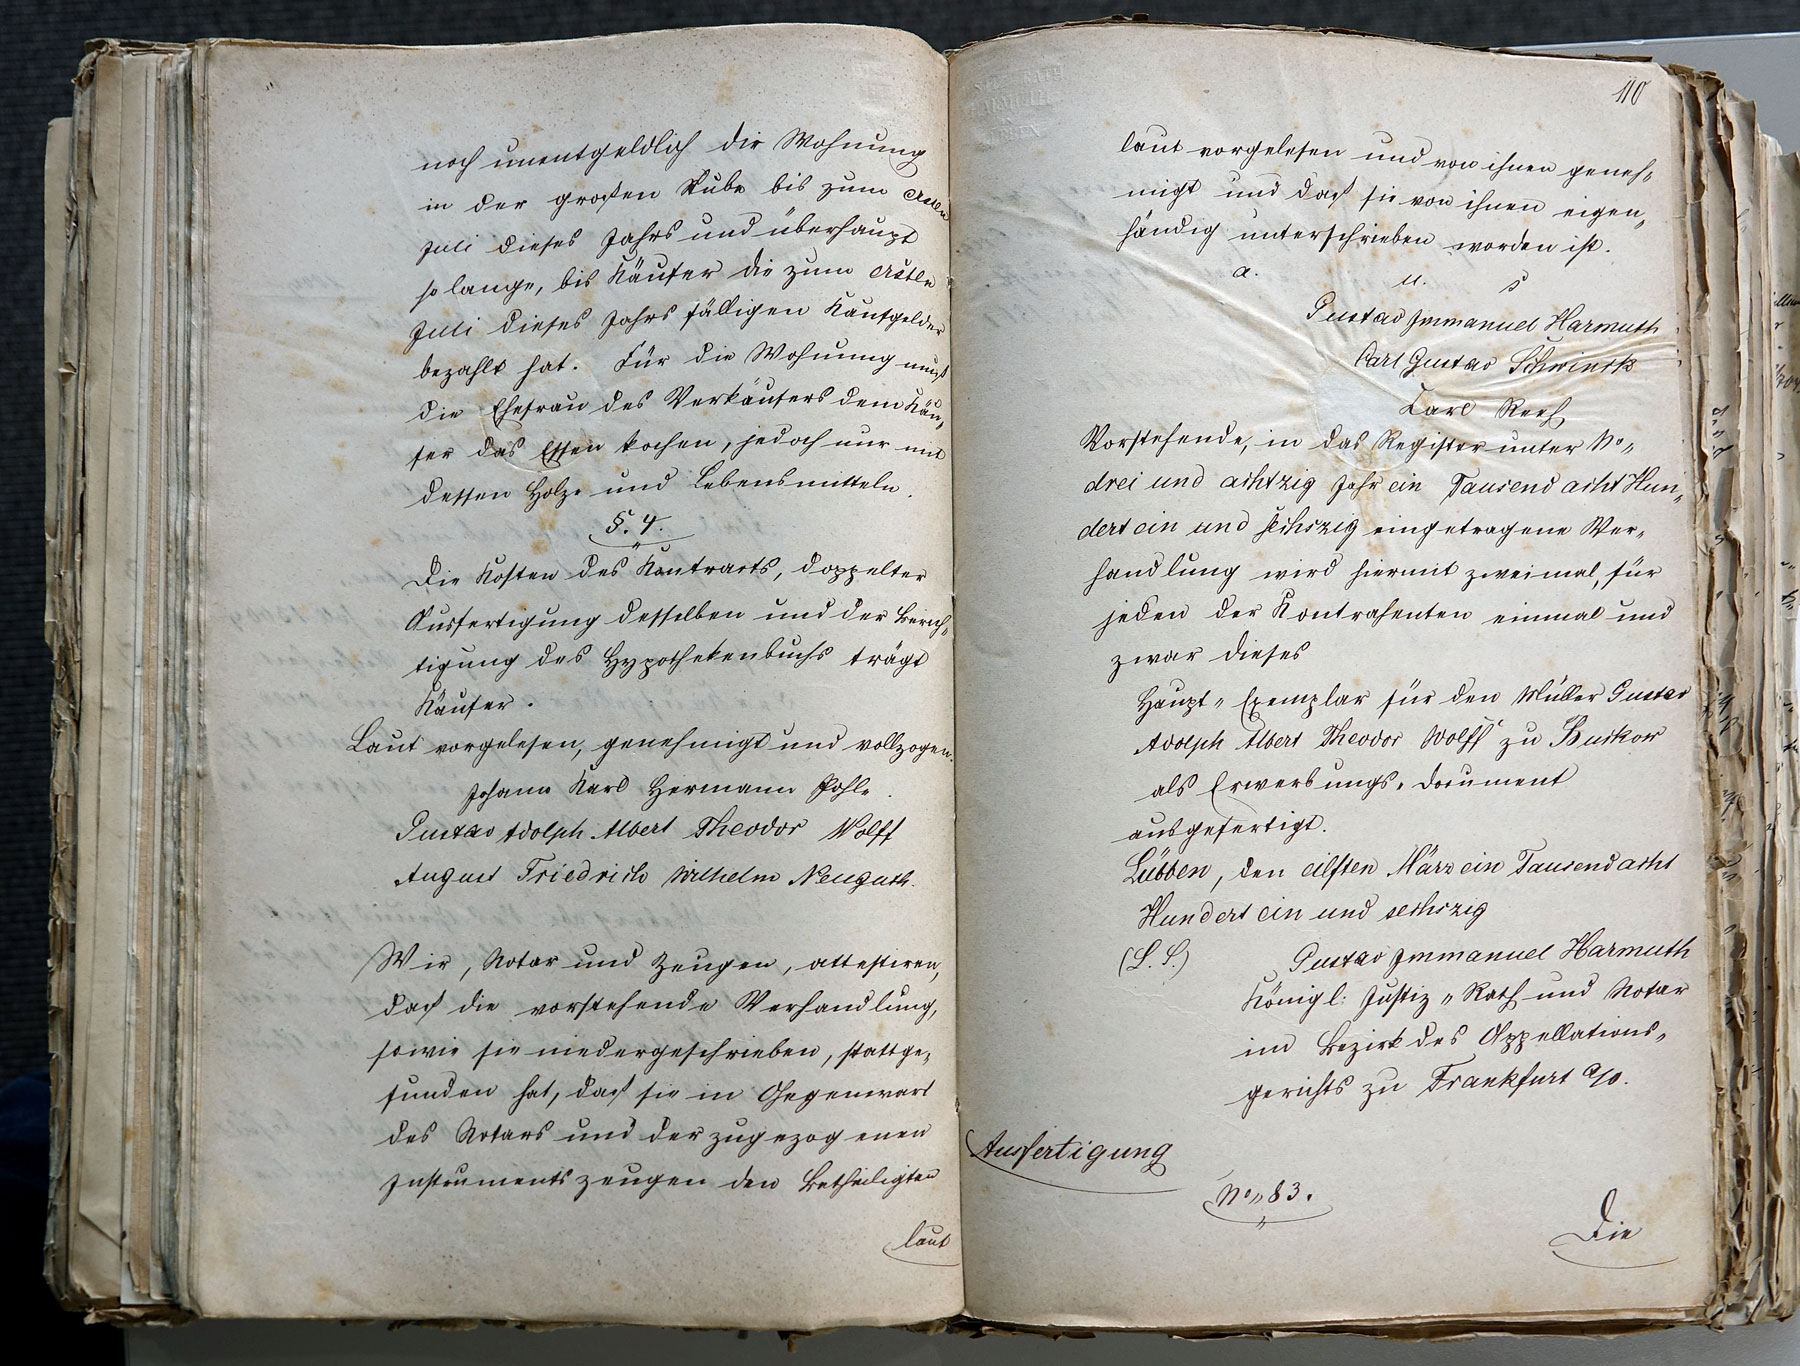 noch unentgeldlich die Wohnung
in der großen Stube bis zum ersten
Juli dieses Jahrs und überhaupt
so lange, bis Käufer die zum ersten
Juli dieses Jahrs fälligen Kaufgelder
bezahlt hat. Für die Wohnung muß
die Ehefrau des Verkäufers dem Käu„
fer das Essen kochen, jedoch nur mit
dessen Holze und Lebensmitteln.
§. 4.
Die Kosten des Kontracts, doppelter
Ausfertigung desselben und der Berich„
tigung des Hypothekenbuchs trägt
Käufer.
Laut vorgelesen, genehmigt und vollzogen.
Johann Karl Hermann Pohle.
Gustav Adolph Albert Theodor Wolff
August Friedrich Wilhelm Neuguth.
Wir, Notar und Zeugen, attestiren,
daß die vorstehende Verhandlung,
sowie sie niedergeschrieben, stattge„
funden hat, daß sie in Gegenwart
des Notars und der zugezogenen
Instrumentszeugen den Betheiligten
laut
110
laut vorgelesen und von ihnen geneh„
migt und daß sie von ihnen eigen„
händig unterschrieben worden ist.
a. u. s
Gustav Immanuel Harmuth
Carl Gustav Schwinsk
Karl Reeh
Vorstehende, in das Register unter No„
drei und achtzig Jahr ein Tausend acht Hun„
dert ein und sechszig eingetragene Ver„
handlung wird hiermit zweimal, für
jeden der Kontrahenten einmal und
zwar dieses
Haupt„Exemplar für den Müller Gustav
Adolph Albert Theodor Wolff zu Buckow
als Erwerbungs„Document
ausgefertigt.
Lübben, den eilften März ein Tausend acht
Hundert ein und sechszig
(L. S.) Gustav Immanuel Harmuth
Königl: Justiz„Rath und Notar
im Bezirk des Appellations„
gerichts zu Frankfurt a/o.
Ausfertigung
No„ 83.
Die